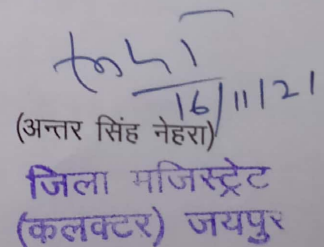 16/11/21
(अन्तर सिंह नेहरा)
जिला मजिस्ट्रेट
(कलक्टर) जयपुर